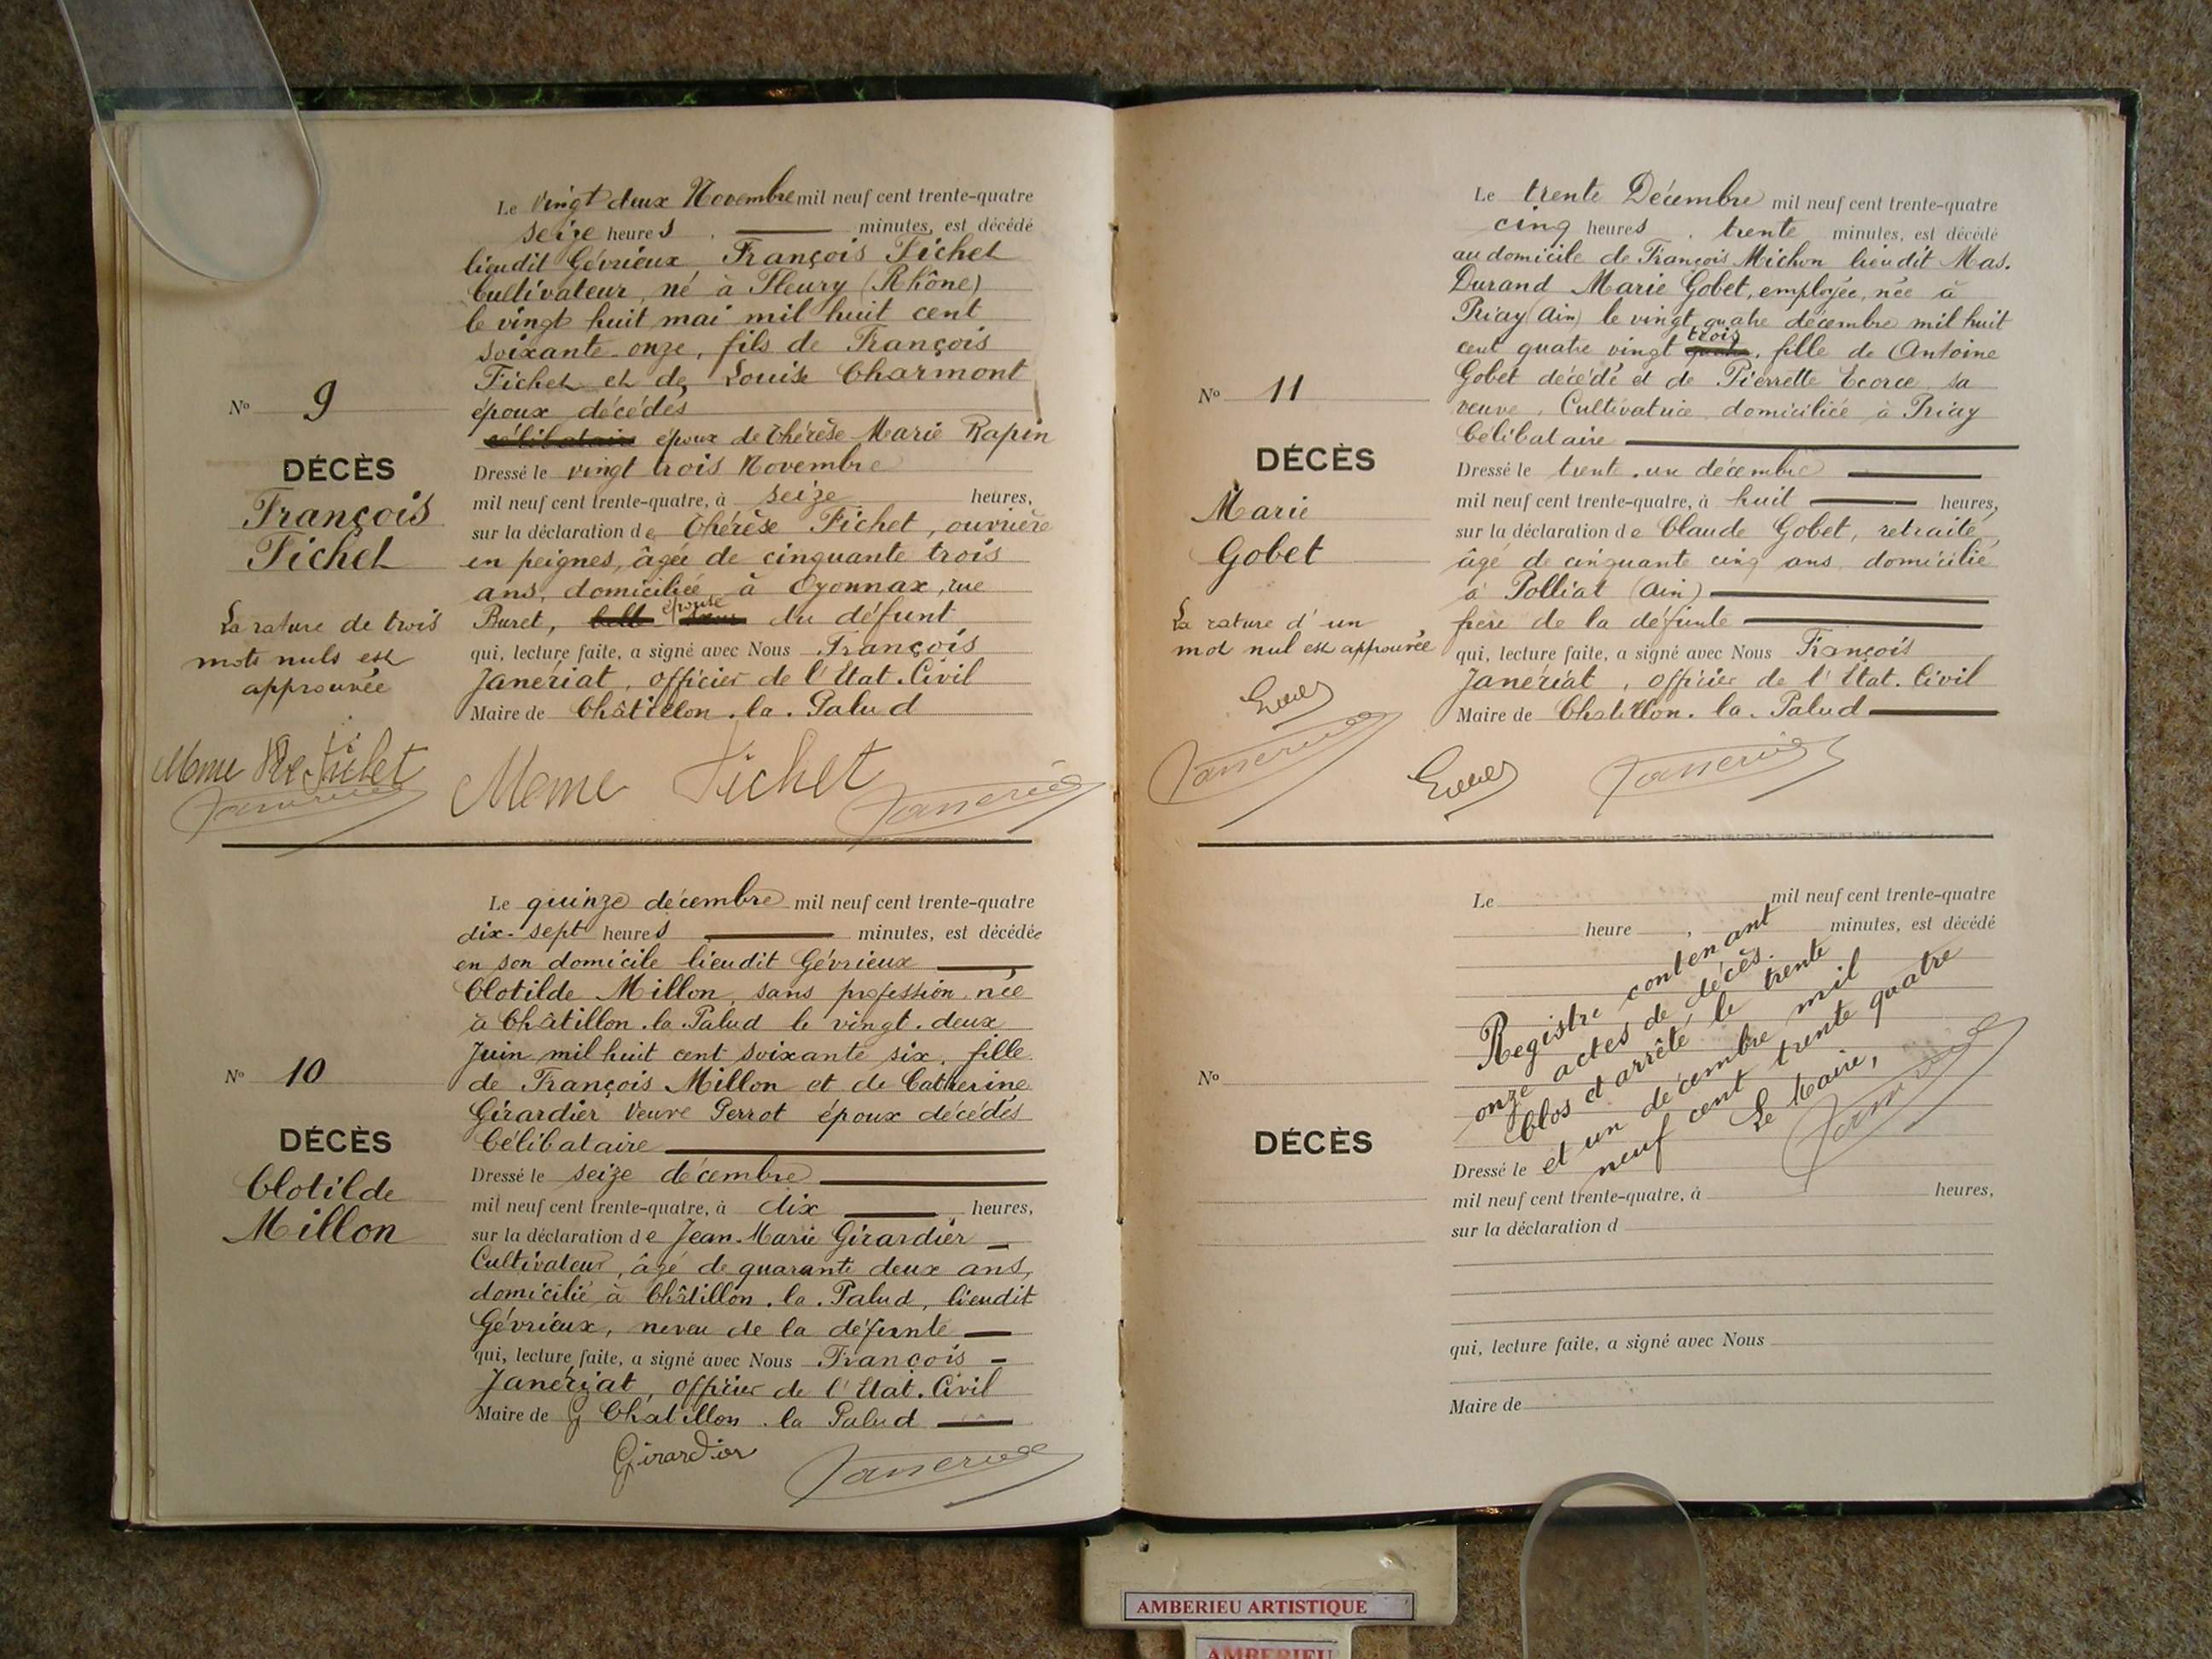 Le vingt deux Novembre mil neuf cent trente-quatre
seize heures minutes, est décédé
lieudit Gévrieux François Fichet
Cultivateur, né à Fleury (Rhône)
le vingt huit mai mil huit cent
soixante-onze, fils de François
Fichet et de Louise Charmont
époux décédés
célibataire époux de Thérèse Marie Rapin
Nº 9
DÉCÈS
François
Fichet
La rature de trois
mots nuls est
approuvée
Dressé le vingt trois Novembre
mil neuf cent trente-quatre, à seize heures,
sur la déclaration de Thérèse Fichet, ouvrière
en peignes, âgée de cinquante trois
ans, domiciliée à Oyonnax, rue
épouse
Buret, du défunt
qui, lecture faite, a signé avec Nous François
Janériat, officier de l'Etat.Civil
Maire de Châtillon.la.Palud
Meme Fichet
Le quinze décembre mil neuf cent trente-quatre
dix-sept heures minutes, est décédée
en son domicile lieudit Gévrieux
Clotilde Millon, sans profession, née
à Châtillon.la.Palud le vingt.deux
Juin mil huit cent soixante six, fille
de François Millon et de Catherine
Girardier Veuve Perrot époux décédés
Célibataire
Nº 10
DÉCÈS
Clotilde
Millon
Dressé le seize décembre
mil neuf cent trente-quatre, à dix heures,
sur la déclaration de Jean.Marie Girardier
Cultivateur, âgé de quarante deux ans,
domicilié à Châtillon.la.Palud, lieudit
Gévrieux, neveu de la défunte
qui, lecture faite, a signé avec Nous François
Janériat, officier de l'Etat.Civil
Maire de Châtillon.la Palud
Girardier
Le trente Décembre mil neuf cent trente-quatre
cinq heures, trente minutes, est décédé
au domicile de François Michon lieudit Mas.
Durand Marie Gobet, employée, née à
Priay (Ain) le vingt quatre décembre mil huit
trois
cent quatre vingt quatre, fille de Antoine
Gobet décédé et de Pierrette Ecorce, sa
veuve, Cultivatrice domiciliée à Priay
Célibataire
Nº 11
DÉCÈS
Marie
Gobet
La rature d'un
mot nul est approuvée
Dressé le trente.un décembre
mil neuf cent trente-quatre, à huit heures,
sur la déclaration de Claude Gobet, retraité,
âgé de cinquante cinq ans, domicilié
à Polliat (Ain)
frère de la défunte
qui, lecture faite, a signé avec Nous François
Janériat, officier de l'Etat.Civil
Maire de Chatillon.la.Palud
Le mil neuf cent trente-quatre
heure , minutes, est décédé
Registre contenant
onze actes de décès.
Clos et arrêté le trente
et un décembre mil
neuf cent trente quatre
Le Maire,
Nº
DÉCÈS
Dressé le
mil neuf cent trente-quatre, à heures,
sur la déclaration d
qui, lecture faite, a signé avec Nous
Maire de
AMBERIEU ARTISTIQUE
AMBERIEU